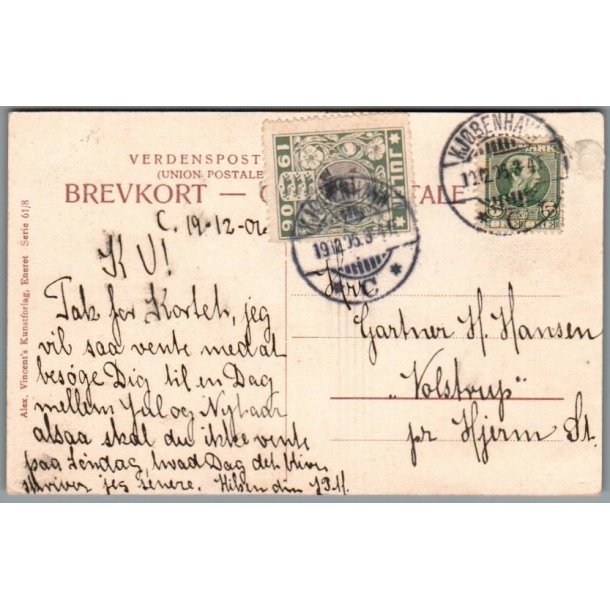 VERDENSPOST
(UNION POSTALE
BREVKORT — C TALE
Alex. Vincent's Kunstforlag, Eneret Serie 61/8
19 06
JULEN
KJØBENHAVN
19.12.06.3-4
C
KJØBENHAVN
19.12.06.3-4
C
MARK
5 5
C. 19-12-06
K V!
Tak for Kortet, jeg
vil saa vente med at
besøge Dig til en Dag
mellem Jul og Nytaar
altsaa skal du ikke vente
paa Søndag, hvad Dag det bliver
skriver jeg senere. Hilsen din
Hr.
Gartner H. Hansen
"Volstrup"
pr Hjerm St.